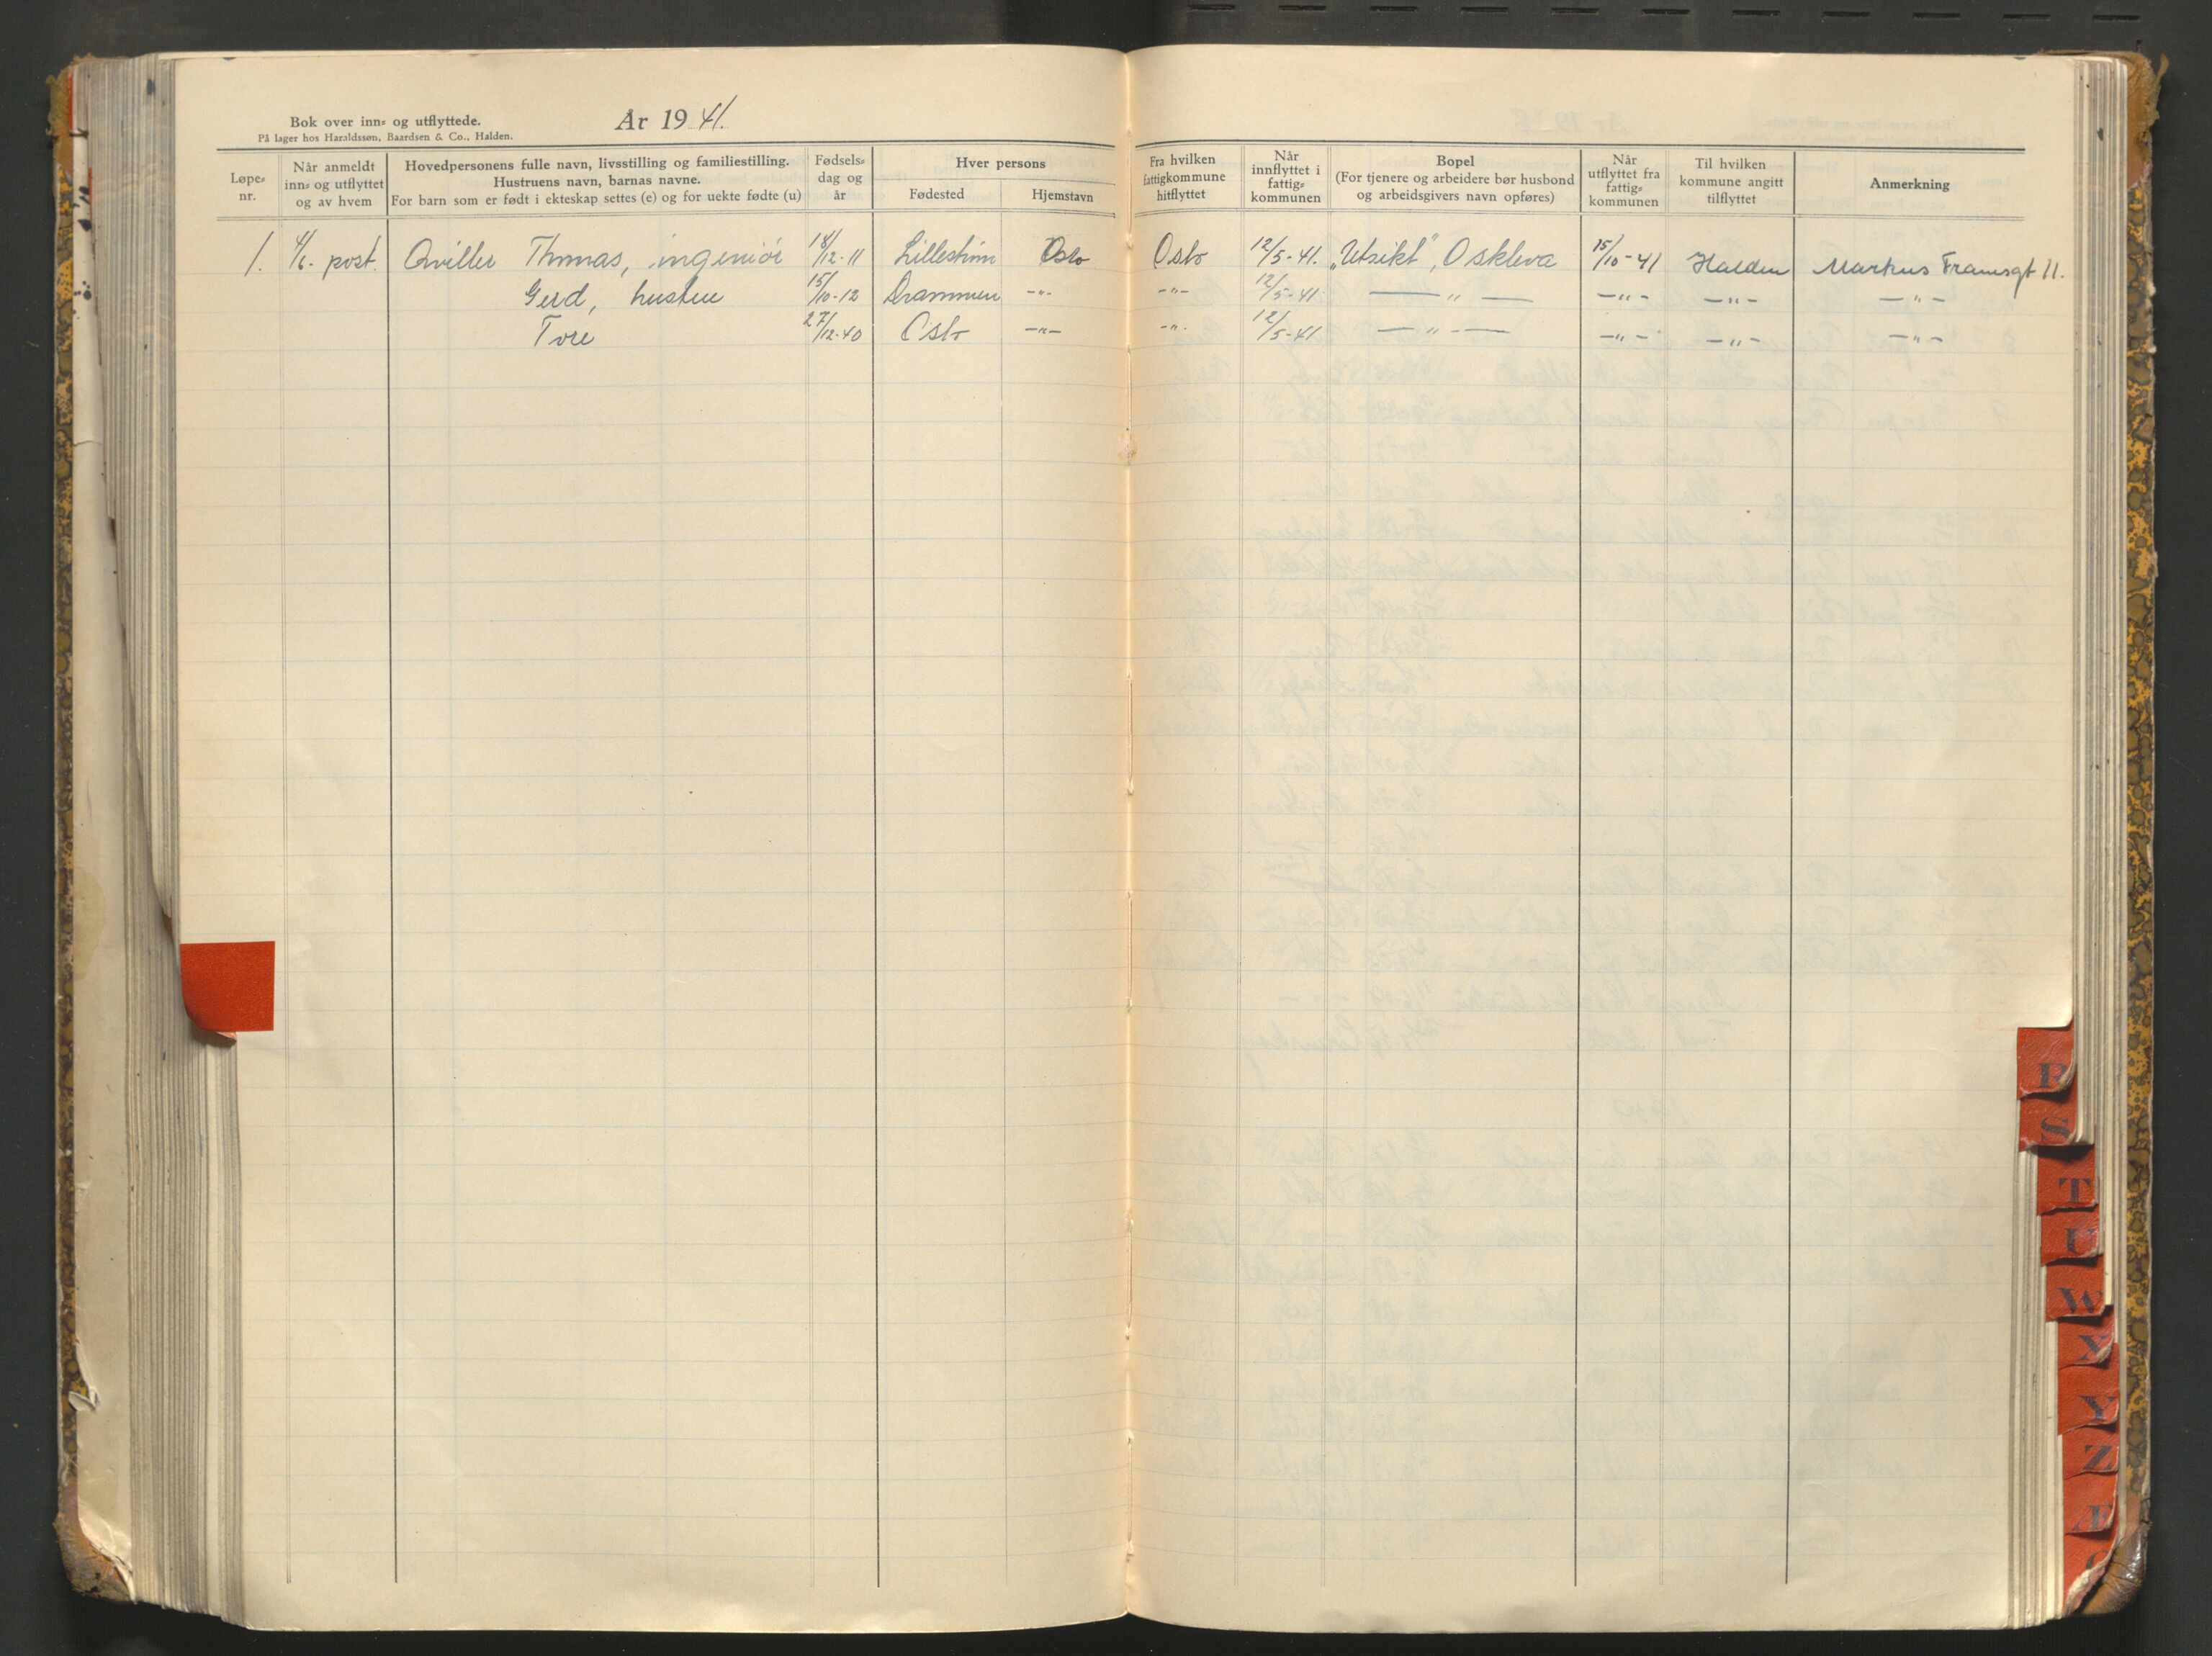 Bok over inn- og utflyttede.
På lager hos Haraldssøn, Baardsen & Co., Halden.
År 1941.
Løpe-nr.
Når anmeldt inn- og utflyttet og av hvem
Hovedpersonens fulle navn, livsstilling og familiestilling.
Hustruens navn, barnas navne.
For barn som er født i ekteskap settes (e) og for uekte fødte (u)
Fødsels-dag og år
Hver persons
Fødested
Hjemstavn
Fra hvilken fattigkommune hitflyttet
Når innflyttet i fattig-kommunen
Bopel
(For tjenere og arbeidere bør husbond og arbeidsgivers navn opføres)
Når utflyttet fra fattig-kommunen
Til hvilken kommune angitt tilflyttet
Anmerkning
1. 4/6- post. Qviller Thomas, ingeniör 18/12-11 Lillestrøm Oslo Oslo 12/5-41. "Utsikt", Oskleva 15/10-41 Halden Markus Franesgt 11.
Gerd, hustru 15/10-12 Drammen -"- -"- 12/5-41 -"- -"- -"- -"-
Tore 27/12-40 Oslo -"- -"- 12/5-41 -"- -"- -"- -"-
R
S
T
U
W
X
Y
Z
Æ